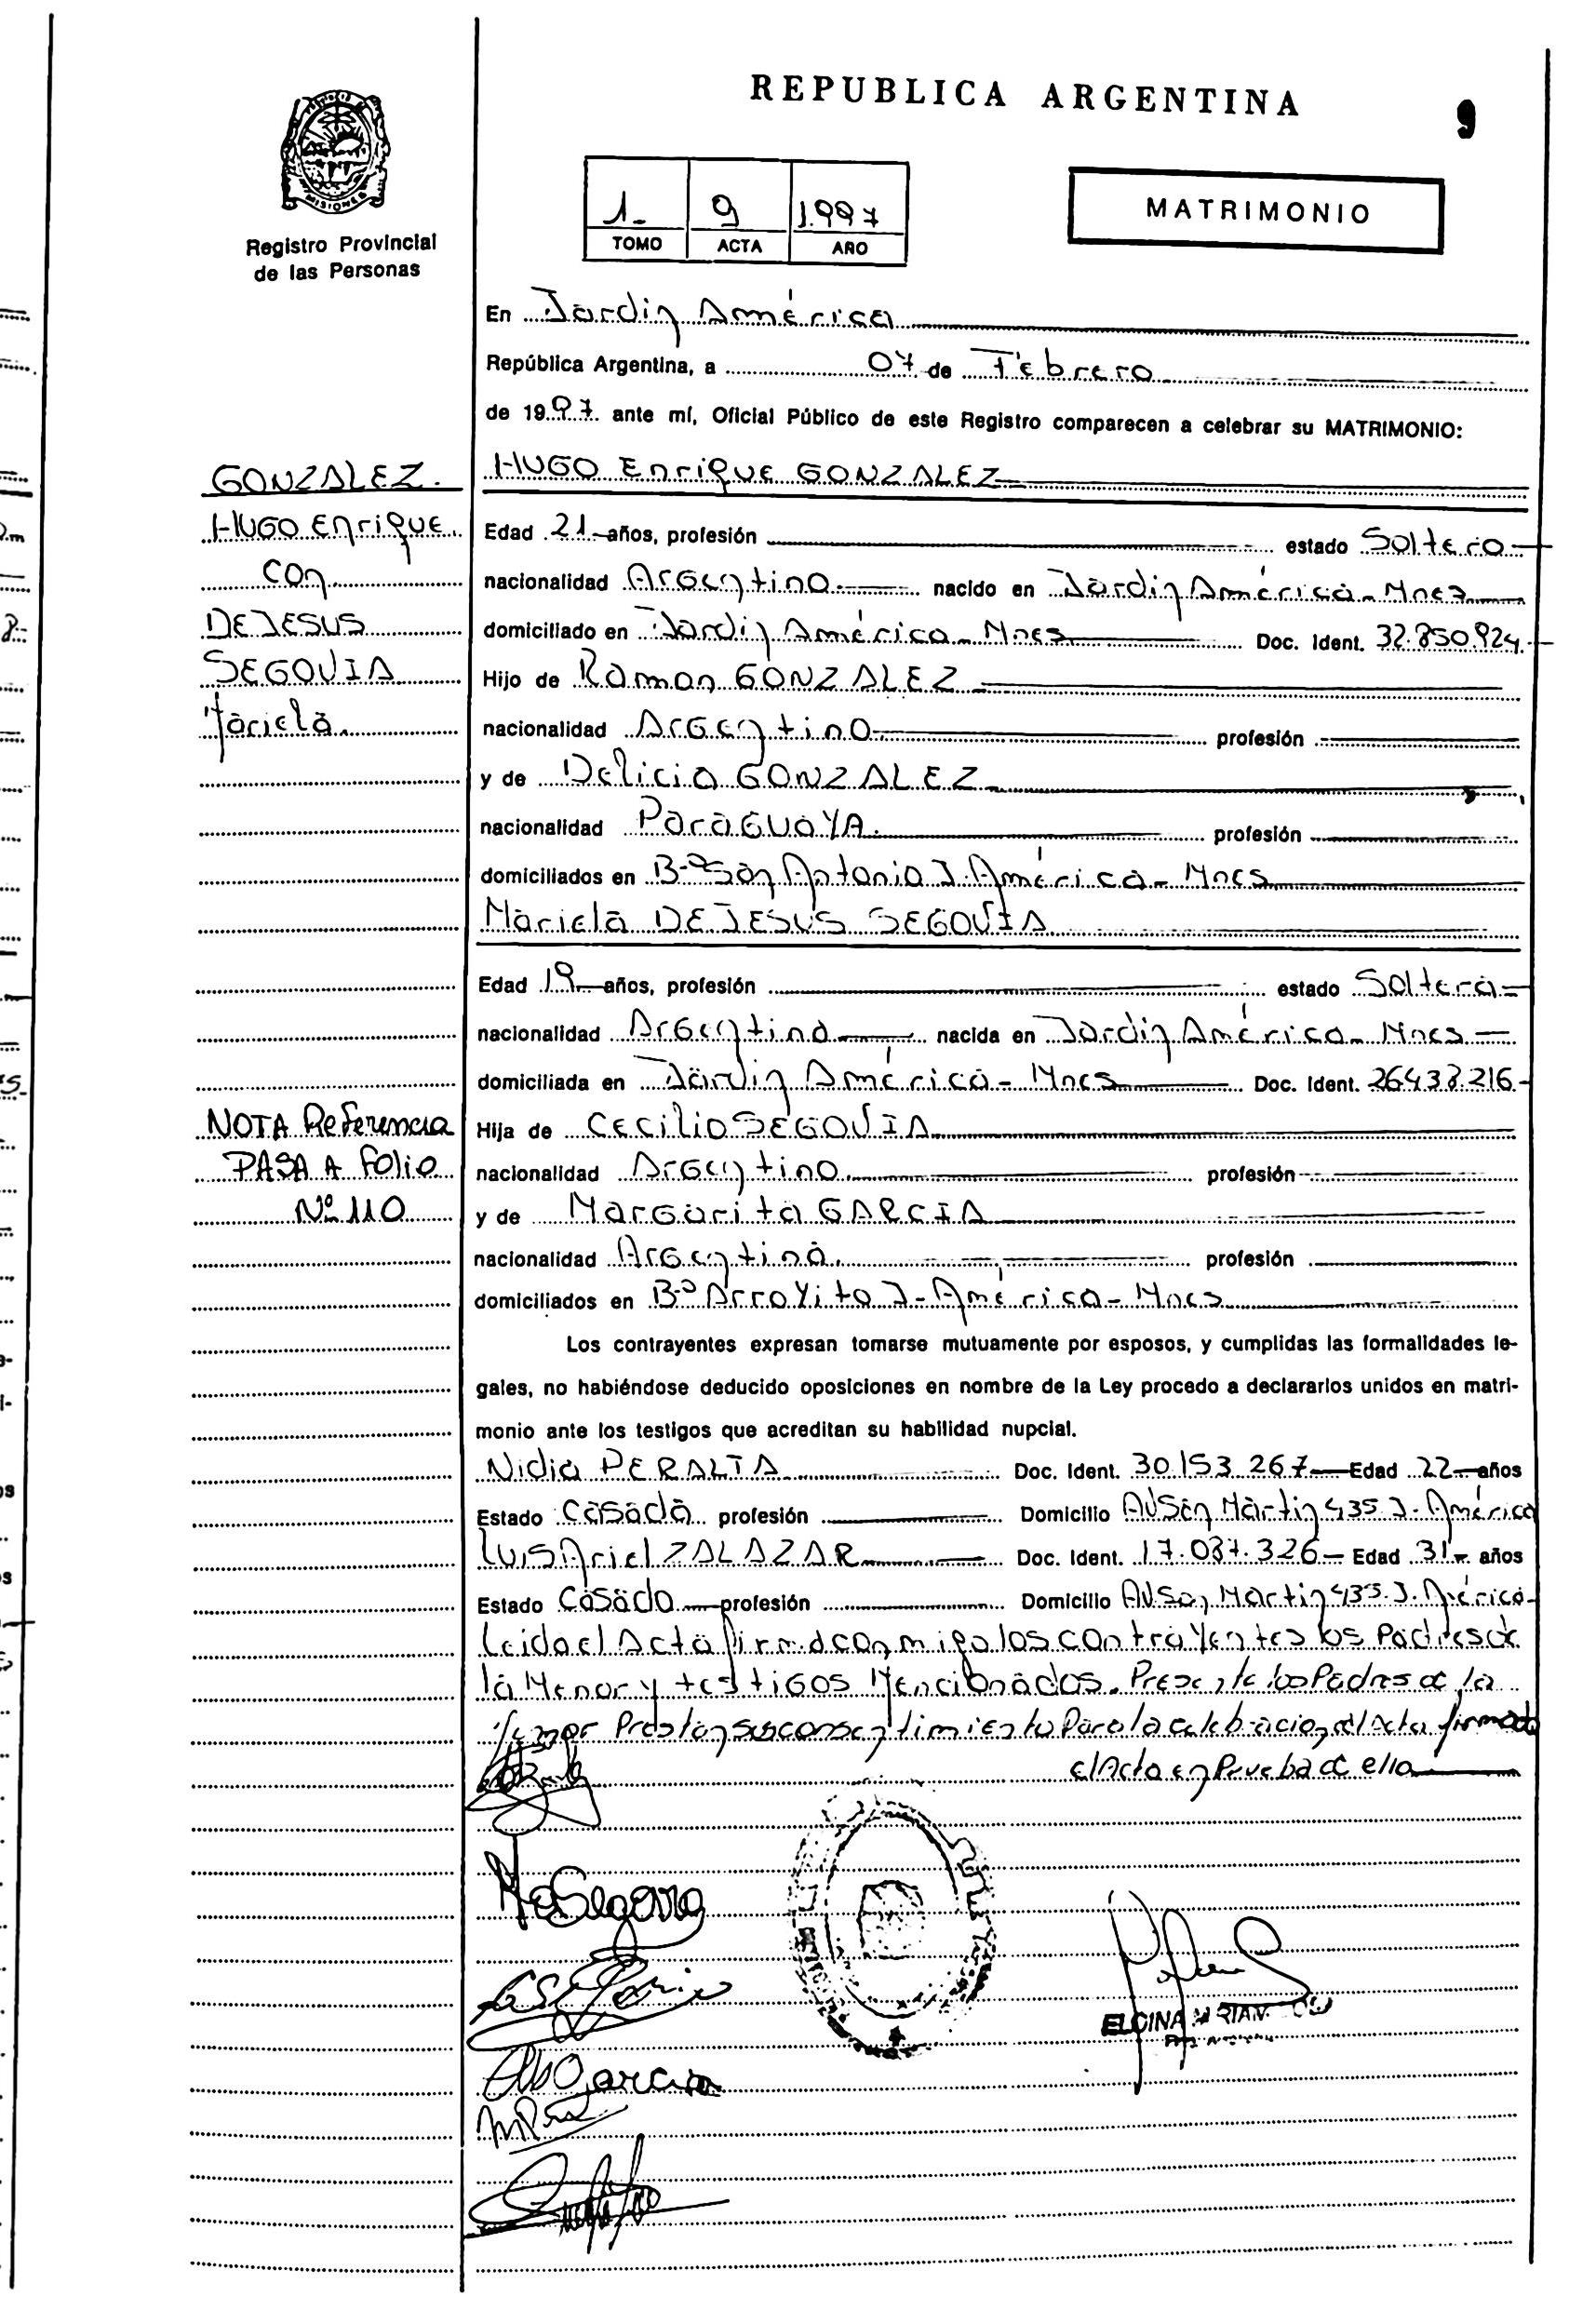 REPUBLICA ARGENTINA
9
MISIONES
Registro Provincial
de las Personas
1- 9 1.997
TOMO ACTA AÑO
MATRIMONIO
En Jardin América
República Argentina, a 07 de Febrero
de 1997 ante mí, Oficial Público de este Registro comparecen a celebrar su MATRIMONIO:
GONZALEZ.
HUGO Enrique.
con
DE JESUS
SEGOVIA
Mariela.
NOTA Referencia
PASA A folio
Nº 110
HUGO Enrique GONZALEZ
Edad 21 años, profesión estado Soltero
nacionalidad Argentino nacido en Jardin América - Mnes
domiciliado en Jardin América - Mnes Doc. Ident. 32.850.924
Hijo de Ramon GONZALEZ
nacionalidad Argentino profesión
y de Delicia GONZALEZ
nacionalidad Paraguaya. profesión
domiciliados en B-º San Antonio J. América - Mnes
Mariela DE JESUS SEGOVIA
Edad 19 años, profesión estado Soltera
nacionalidad Argentina nacida en Jardin América - Mnes
domiciliada en Jardin América - Mnes Doc. Ident. 26.438.216
Hija de Cecilio SEGOVIA
nacionalidad Argentino profesión
y de Margarita GARCIA
nacionalidad Argentina. profesión
domiciliados en B-º Arroyito J- América - Mnes
Los contrayentes expresan tomarse mutuamente por esposos, y cumplidas las formalidades le-
gales, no habiéndose deducido oposiciones en nombre de la Ley procedo a declararlos unidos en matri-
monio ante los testigos que acreditan su habilidad nupcial.
Nidia PERALTA Doc. Ident. 30.153.267 Edad 22 años
Estado Casada profesión Domicilio AV San Martin 435 J. América
Luis Ariel ZALAZAR Doc. Ident. 17.037.326 Edad 31 años
Estado Casado profesión Domicilio AV San Martin 435 J. América
Leida el Acta firma conmigo los contrayentes los Padres de
la Menor y testigos Mencionados. Presente los Padres de la
Menor Prestan su consentimiento Para la celebracion del Acta firmado
el Acta en Prueba de ello
Segovia
Garcia
ELCINA